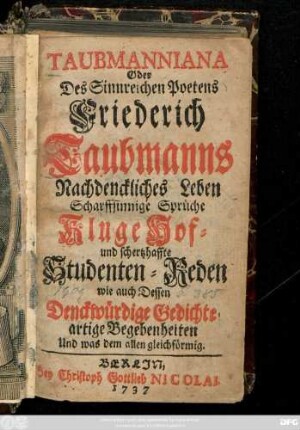 TAUBMANNIANA
Oder
Des Sinnreichen Poetens
Friederich
Taubmanns
Nachdenckliches Leben
Scharffsinnige Sprüche
Kluge Hof-
und schertzhaffte
Studenten-Reden
wie auch Dessen
Denckwürdige Gedichte,
artige Begebenheiten
Und was dem allen gleichförmig.
BERLIN,
Bey Christoph Gottlieb NICOLAI.
1737